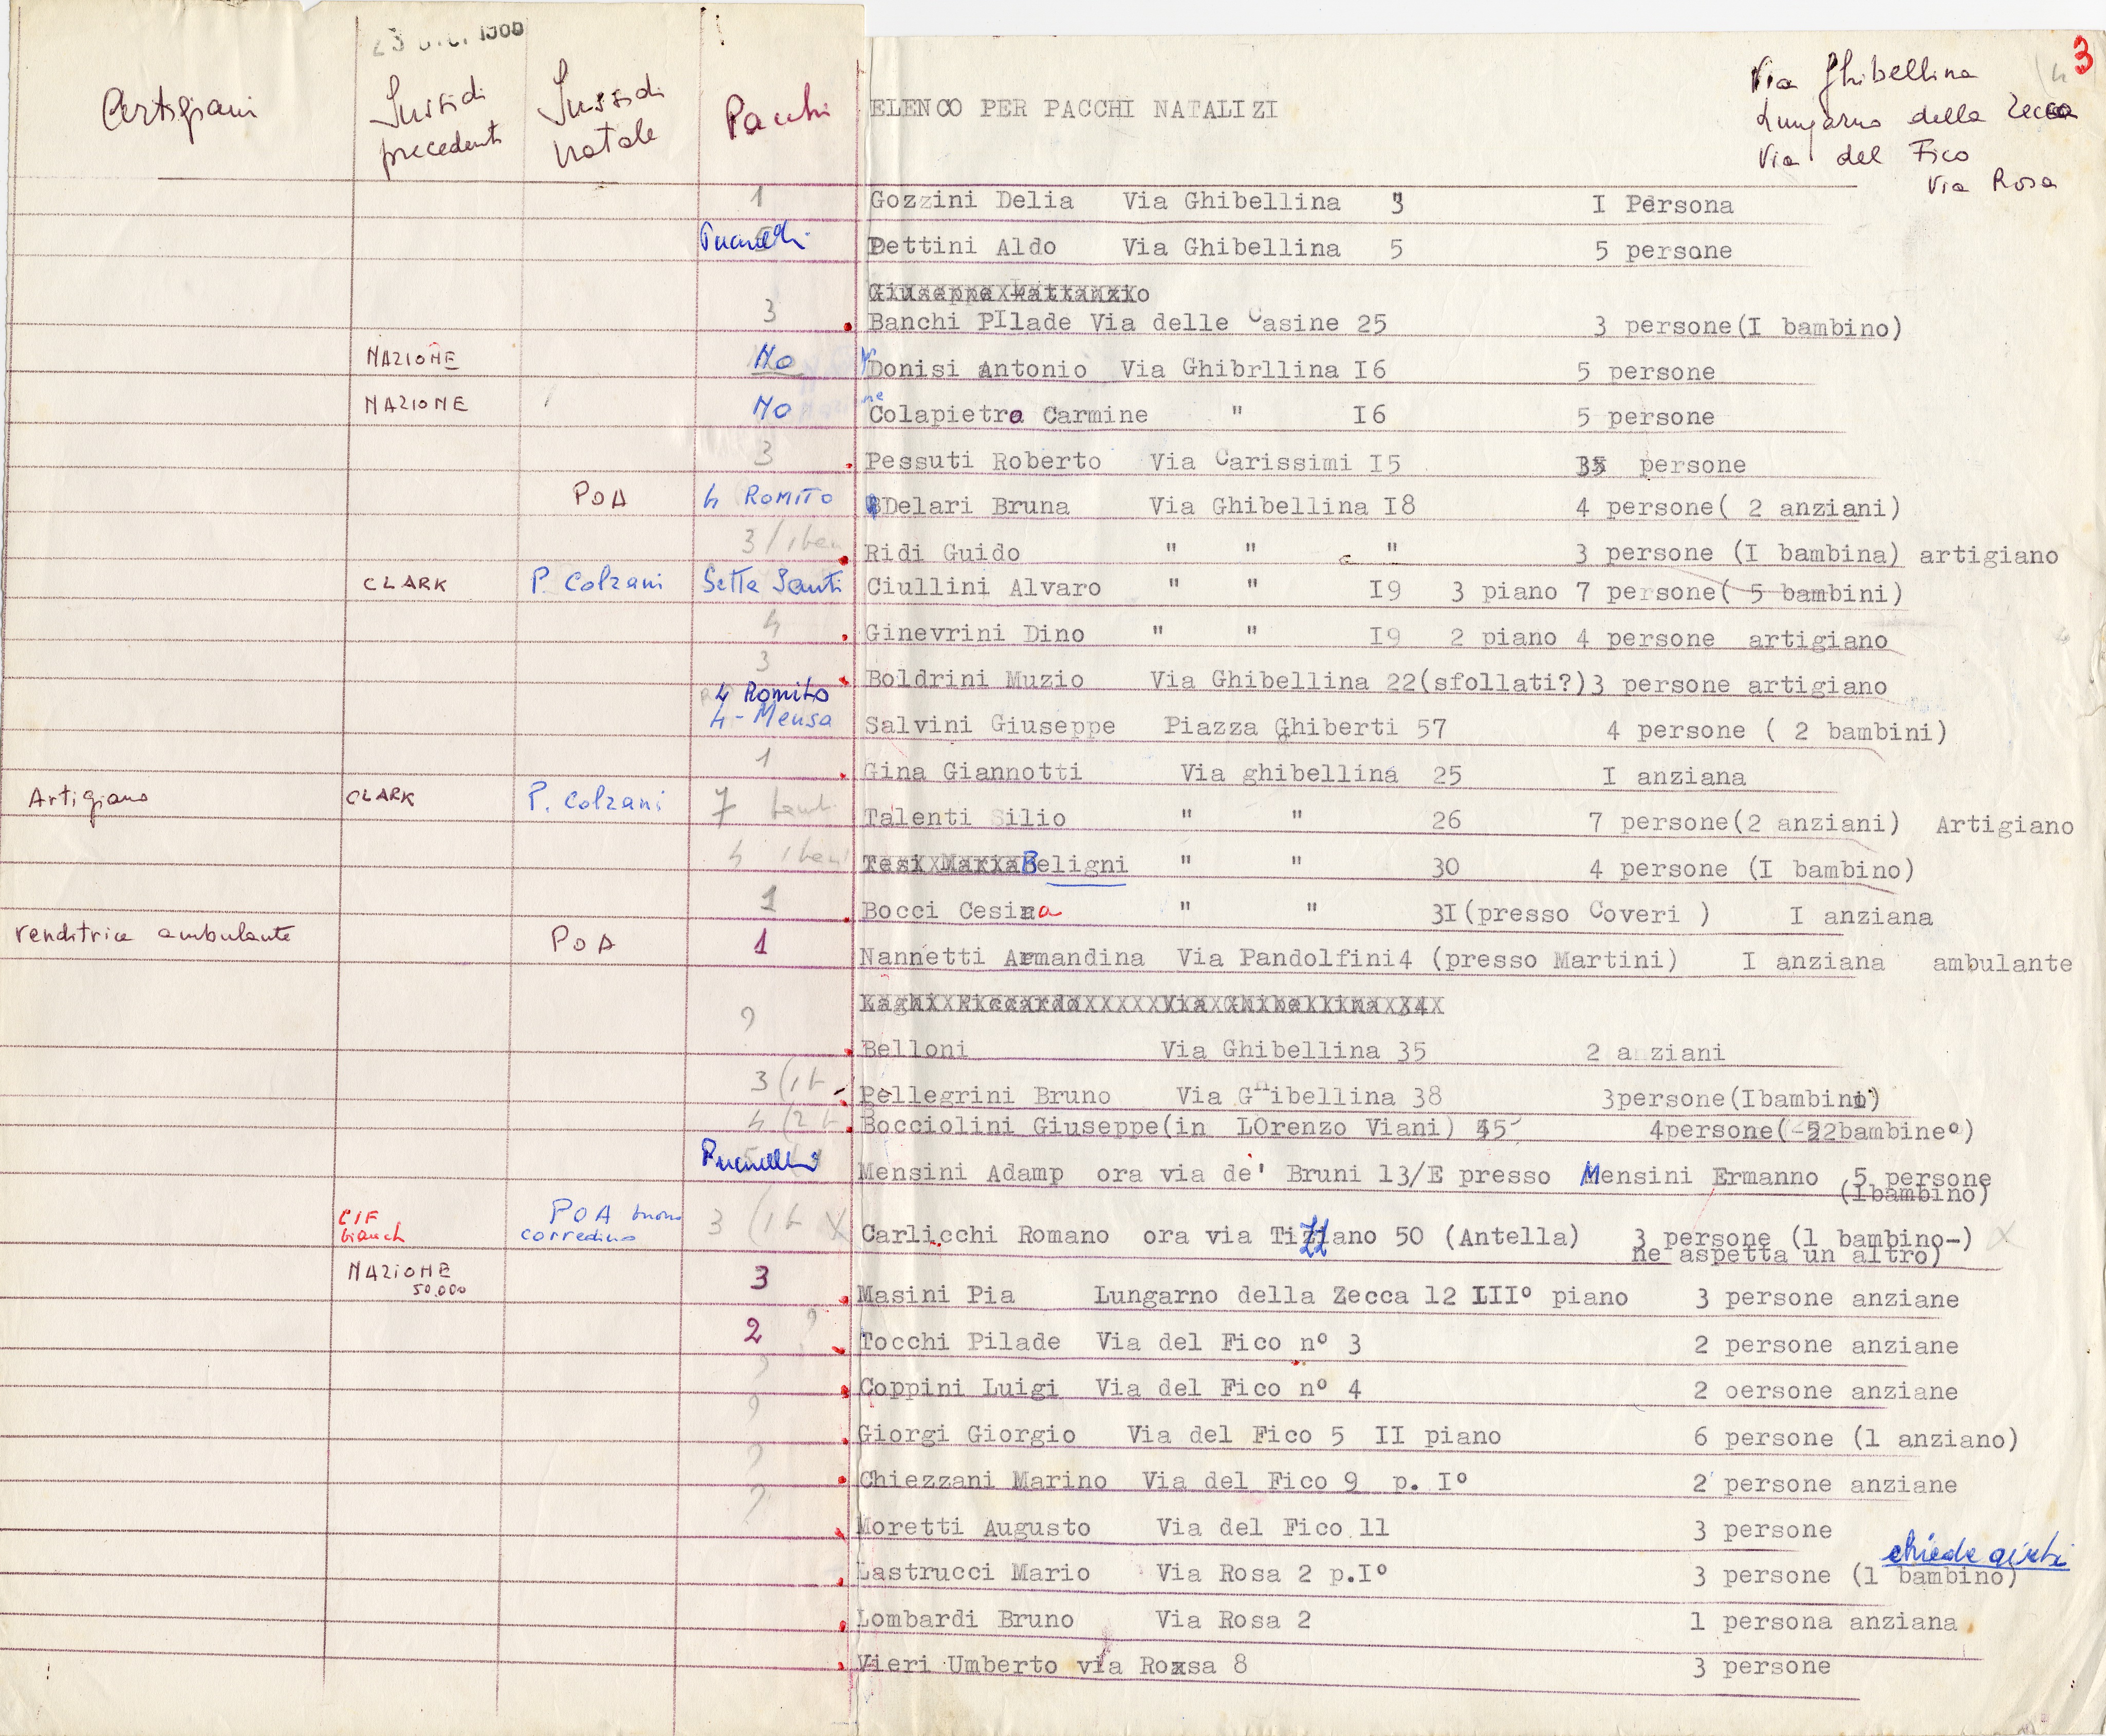 Via Ghibellina 3
Lungarno della Zecca
Via del Fico
Via Rosa
Artigiani Sussidi precedenti Sussidi natale Pacchi ELENCO PER PACCHI NATALIZI
1 Gozzini Delia Via Ghibellina 3 I Persona
Pettini Aldo Via Ghibellina 5 5 persone
3 Banchi PIlade Via delle Casine 25 3 persone(I bambino)
NAZIONE No Donisi Antonio Via Ghibrllina I6 5 persone
NAZIONE No Colapietro Carmine " I6 5 persone
3 Pessuti Roberto Via Carissimi I5 persone
POA 4 ROMITO Delari Bruna Via Ghibellina I8 4 persone( 2 anziani)
3 Ridi Guido " " " 3 persone (I bambina) artigiano
CLARK P. Colzani Ciullini Alvaro " " I9 3 piano 7 persone( 5 bambini)
4 Ginevrini Dino " " I9 2 piano 4 persone artigiano
3 Boldrini Muzio Via Ghibellina 22(sfollati?)3 persone artigiano
4 Romito
4 - Mensa Salvini Giuseppe Piazza Ghiberti 57 4 persone ( 2 bambini)
1 Gina Giannotti Via ghibellina 25 I anziana
Artigiano CLARK P. Colzani 7 Talenti Silio " " 26 7 persone(2 anziani) Artigiano
4 Beligni " " 30 4 persone (I bambino)
1 Bocci Cesira " " 3I(presso Coveri ) I anziana
venditrice ambulante POA 1 Nannetti Armandina Via Pandolfini4 (presso Martini) I anziana ambulante
? Belloni Via Ghibellina 35 2 anziani
3 (1 b Pellegrini Bruno Via Ghibellina 38 3persone(Ibambino)
4 (2 b Bocciolini Giuseppe(in LOrenzo Viani) 45 4persone(2bambine°)
Mensini Adamp ora via de' Bruni 13/E presso Mensini Ermanno 5 persone
(Ibambino)
CIF POA buono corredino 3 (1 b X Carlicchi Romano ora via Tiziano 50 (Antella) 3 persone (1 bambino-) X
ne aspetta un altro)
NAZIONE 50.000 3 Masini Pia Lungarno della Zecca 12 III° piano 3 persone anziane
2 ? Tocchi Pilade Via del Fico n° 3 2 persone anziane
? Coppini Luigi Via del Fico n° 4 2 oersone anziane
? Giorgi Giorgio Via del Fico 5 II piano 6 persone (1 anziano)
? Chiezzani Marino Via del Fico 9 p. I° 2 persone anziane
? Moretti Augusto Via del Fico 11 3 persone
chiede aiuti
Lastrucci Mario Via Rosa 2 p.I° 3 persone (1 bambino)
Lombardi Bruno Via Rosa 2 1 persona anziana
Vieri Umberto via Roxsa 8 3 persone